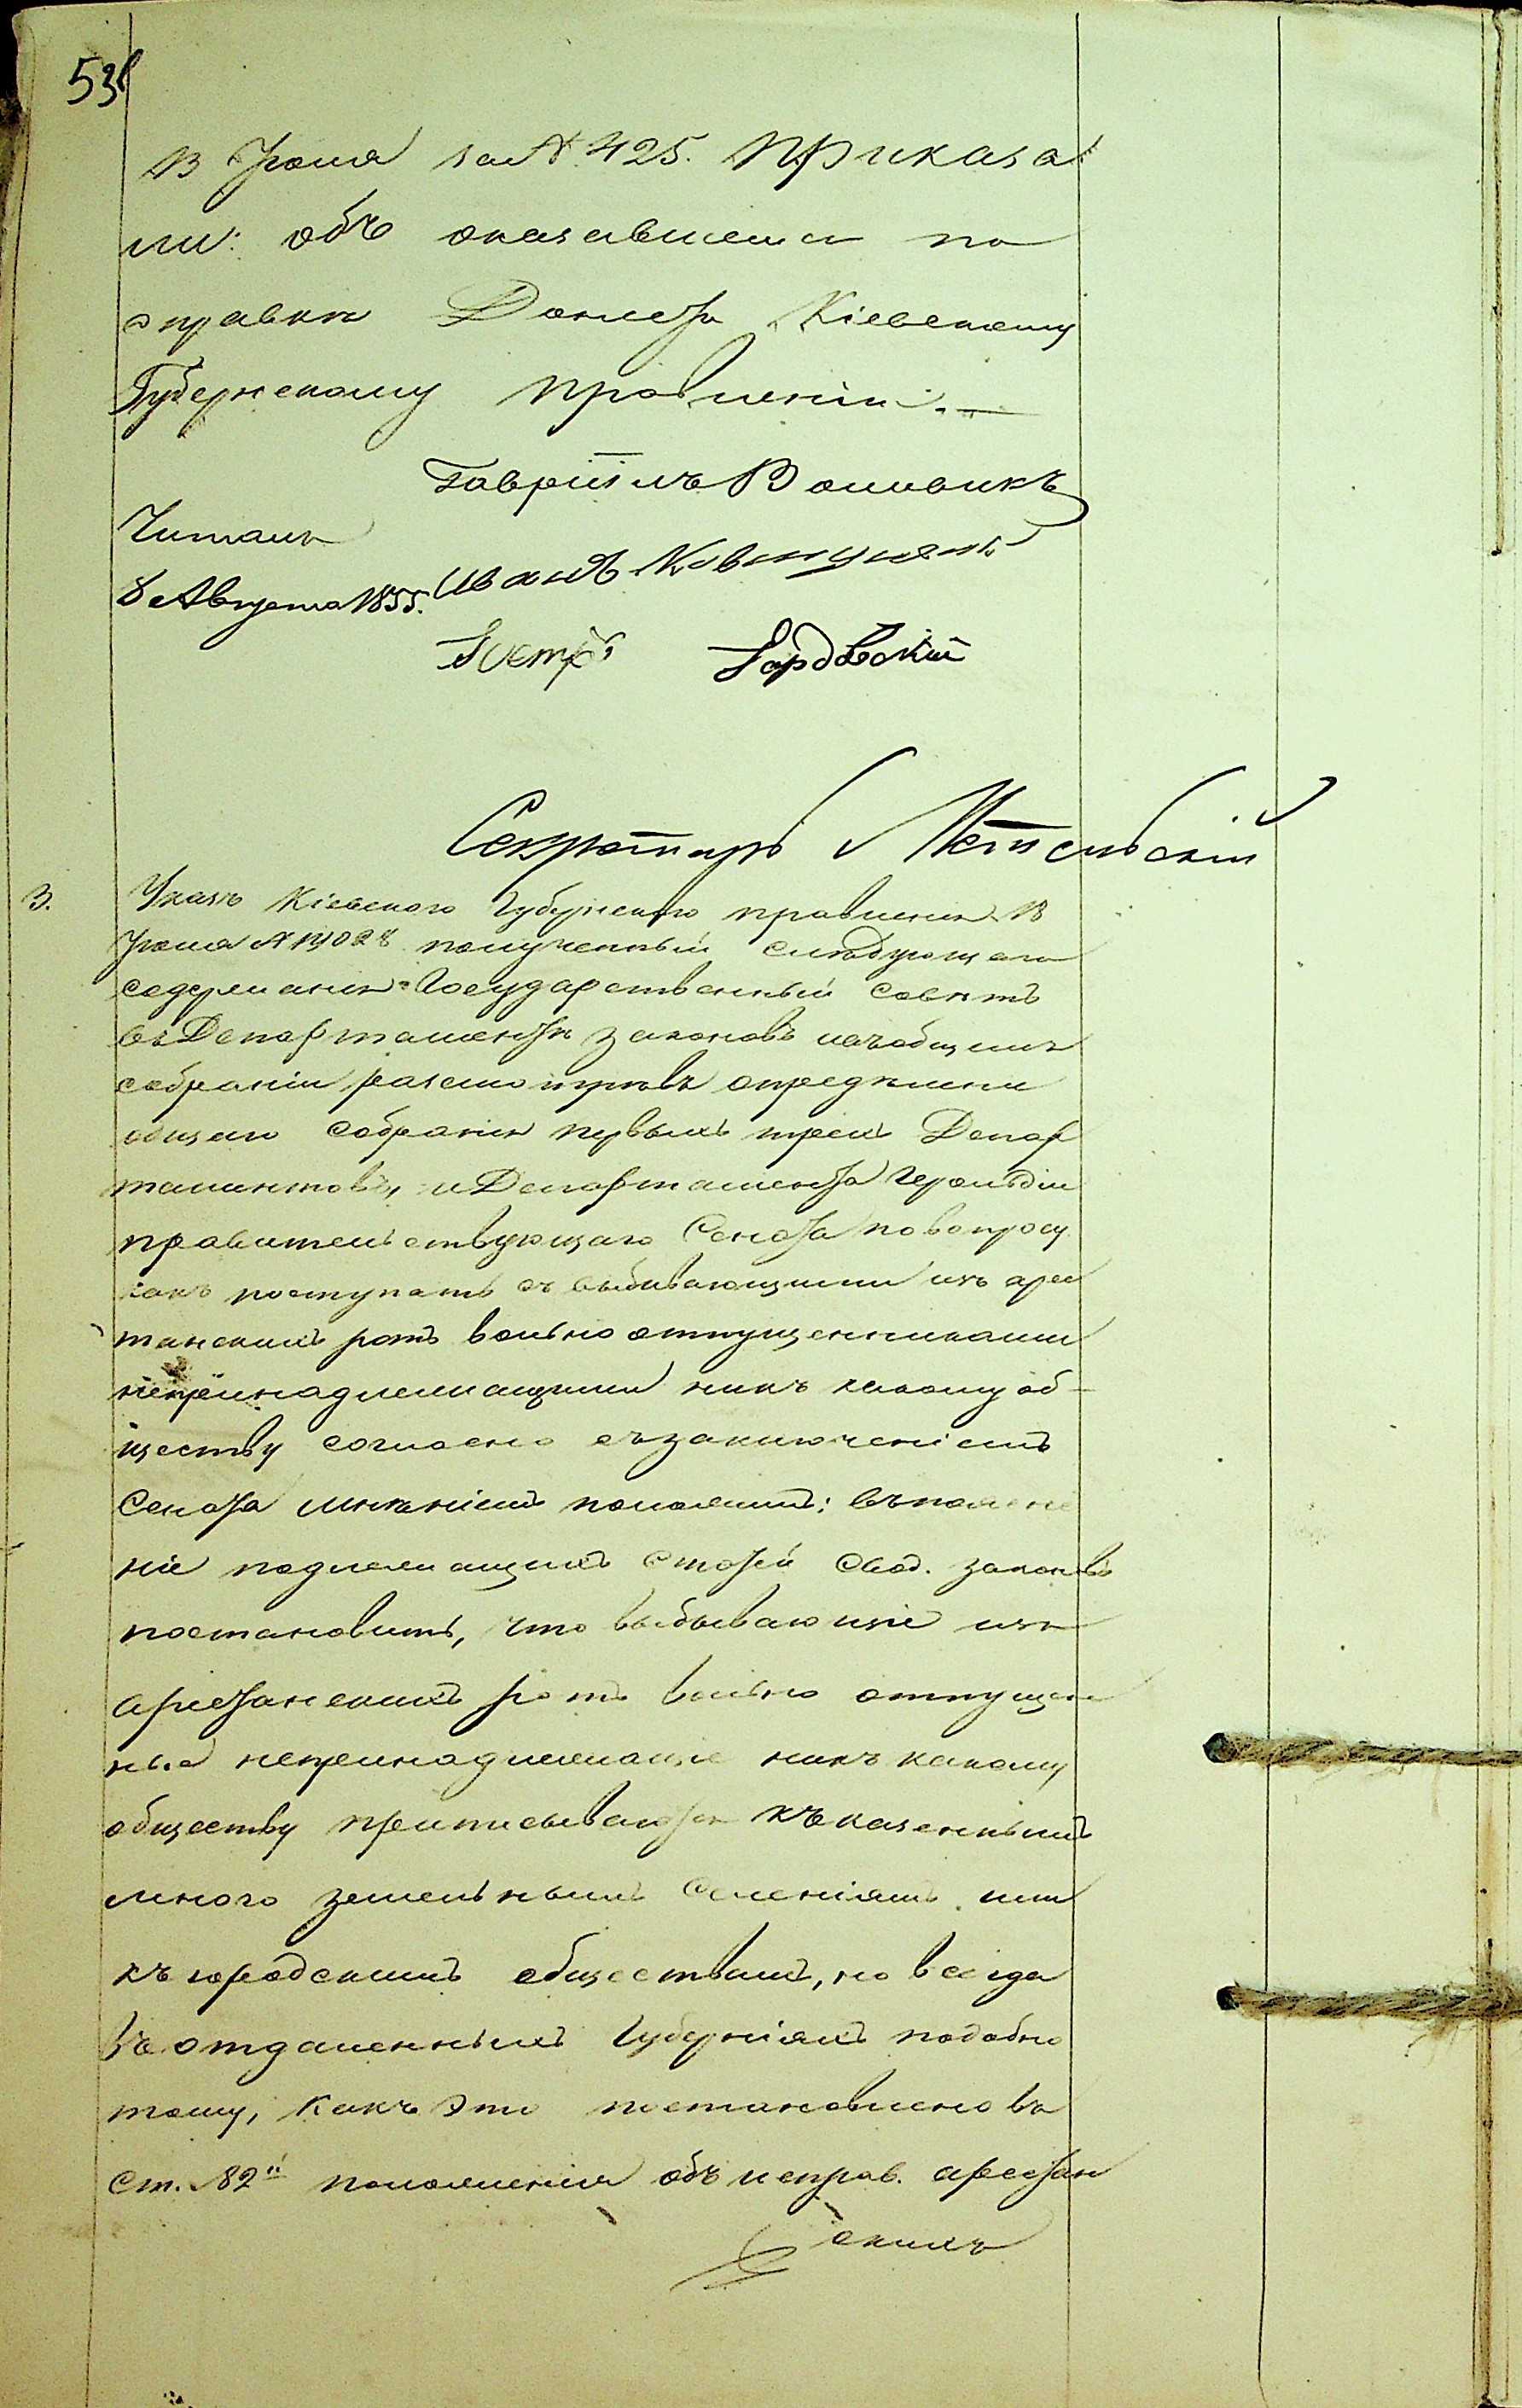 53
13 Іюля за № 425. Приказа
ли: объ оказавшемся по
справкѣ Донести Кіевскому
Губернскому правленію. —
Гавріилъ Воливикъ
Читалъ
8 Августа 1855.
Иванъ
Петръ
Секретарь
3. Указъ Кіевского Губернского правленія 13
Іюля № полученный слѣдующаго
содержанія: Государственный Совѣтъ
въ Департаментѣ законовъ и въ общемъ
собраніи разсмотрѣвъ опредѣленіе
общаго Собранія первыхъ трехъ Депар
таментовъ, и Департамента Герольдіи
правительствующаго Сената по вопросу
какъ поступать съ выбывающими изъ арес
танскихъ ротъ вольно отпущенниками
непринадлежащими никъ какому об-
ществу согласно съ заключеніемъ
Сената мнѣніемъ положилъ: въ поясне
ніе подлежащихъ Статей Свод. законовъ
постановить, что выбывающіе изъ
арестанскихъ ротъ вольно отпущен
ные непринадлежащіе никъ какому
обществу приписываются къ казеннымъ
много земельнымъ Селеніямъ или
къ городскимъ обществамъ, но всегда
въ отдаленныхъ Губерніяхъ подобно
тому, какъ это постановлено въ
Ст. 82й положенія объ исправ. арестан
скихъ